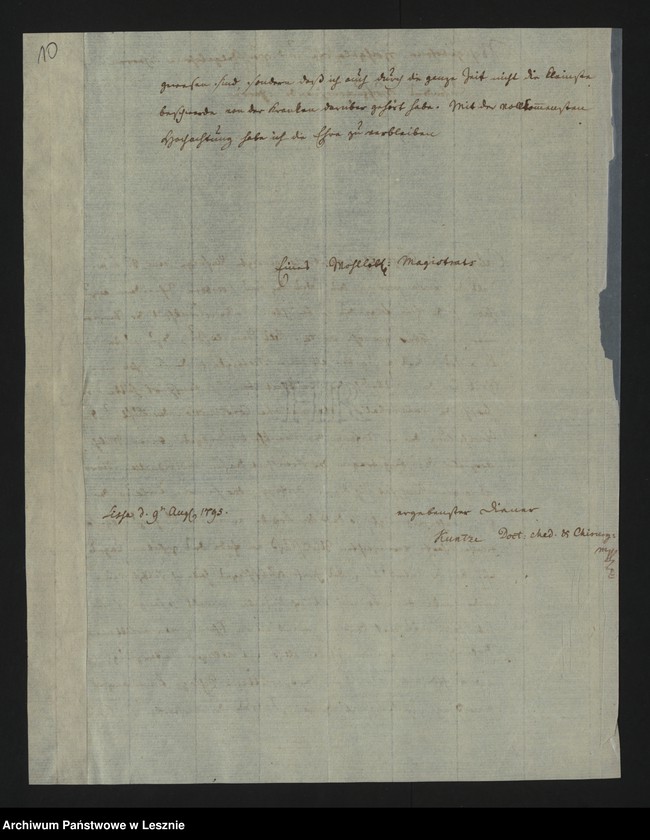 10
gewesen sind, sondern daß ich auch durch die ganze Zeit nicht die kleinste
beschwerde von der Kranken darüber gehört habe. Mit der vollkommensten
Hochachtung habe ich die Ehre zu verbleiben
Eines Wohllöbl: Magistrats
Lissa d. 9t Aug 1793.
ergebenster Diener
Kuntze Doct: Med. & Chirurg:
Archiwum Państwowe w Lesznie